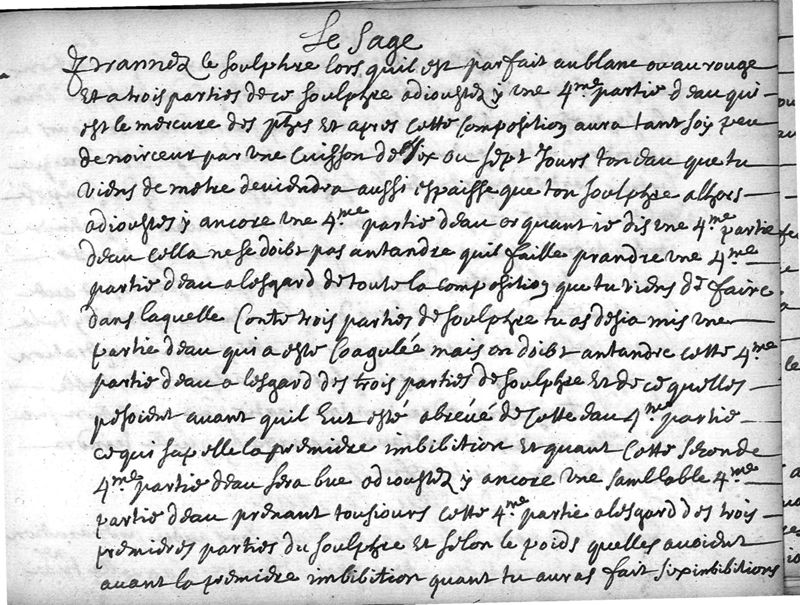 Le Sage
Prannez le soulphre lors quil est parfait au blanc ou au rouge
Et a trois parties de ce soulphre adioustez y une 4.me partie d eau qui
est le mercure des phes Et apres cette composition aura tant soy peu
de noirceur par une cuisson de six ou sept Jours ton eau que tu
viens de metre deviendra aussi espaisse que ton soulphre alhors
adioustes y ancore une 4.me partie d eau or quant ie dis une 4.me partie
deau cella ne se doibt pas antandre quil faille prandre une 4.me
partie d eau a lesgard de toute la composition que tu viens de faire
dans laquelle Contre trois parties de soulphre tu as desia mis une
partie d eau qui a esté Coagulée mais on doibt antandre cette 4.me
partie d eau a lesgard des trois parties de soulphre Et de ce quelles
pesoient avant quil Eut esté abrévé de cette eau 4.me partie
ce qui sapelle la premiere imbibition Et quant Cette seconde
4.me partie d eau sera bue adioustez y ancore une samblable 4.me
partie d eau prenant tousiours cette 4.me partie a lesgard des trois
premieres parties du soulphre Et selon le poids quelles avoient
avant la premiere imbibition quant tu auras fait six imbibitions